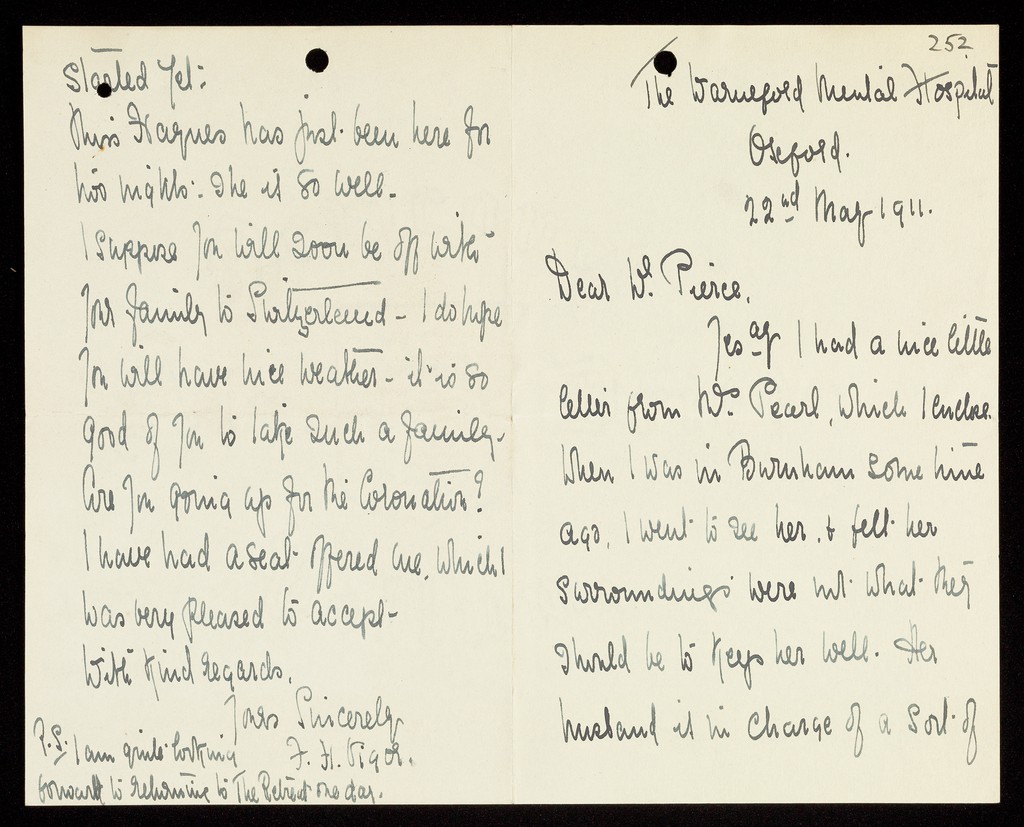 252
The Warneford Mental Hospital
Oxford.
22nd May 1911.
Dear Dr. Pierce,
Yesday I had a nice little
letter from Mrs. Pearl, which I enclose.
When I was in Burnham some time
ago, I went to see her, & felt her
surroundings were not what they
should be to keep her well. Her
husband is in charge of a sort of
started yet:
Miss Hagues has just been here for
two nights. She is so well.
I suppose you will soon be off with
your family to Switzerland - I do hope
you will have nice weather - it is so
good of you to take such a family.
Are you going up for the Coronation?
I have had a seat offered me, which I
was very pleased to accept -
With kind regards,
Yours Sincerely
F. H. Vigor.
P.S. I am quite looking
forward to returning to The Retreat one day.